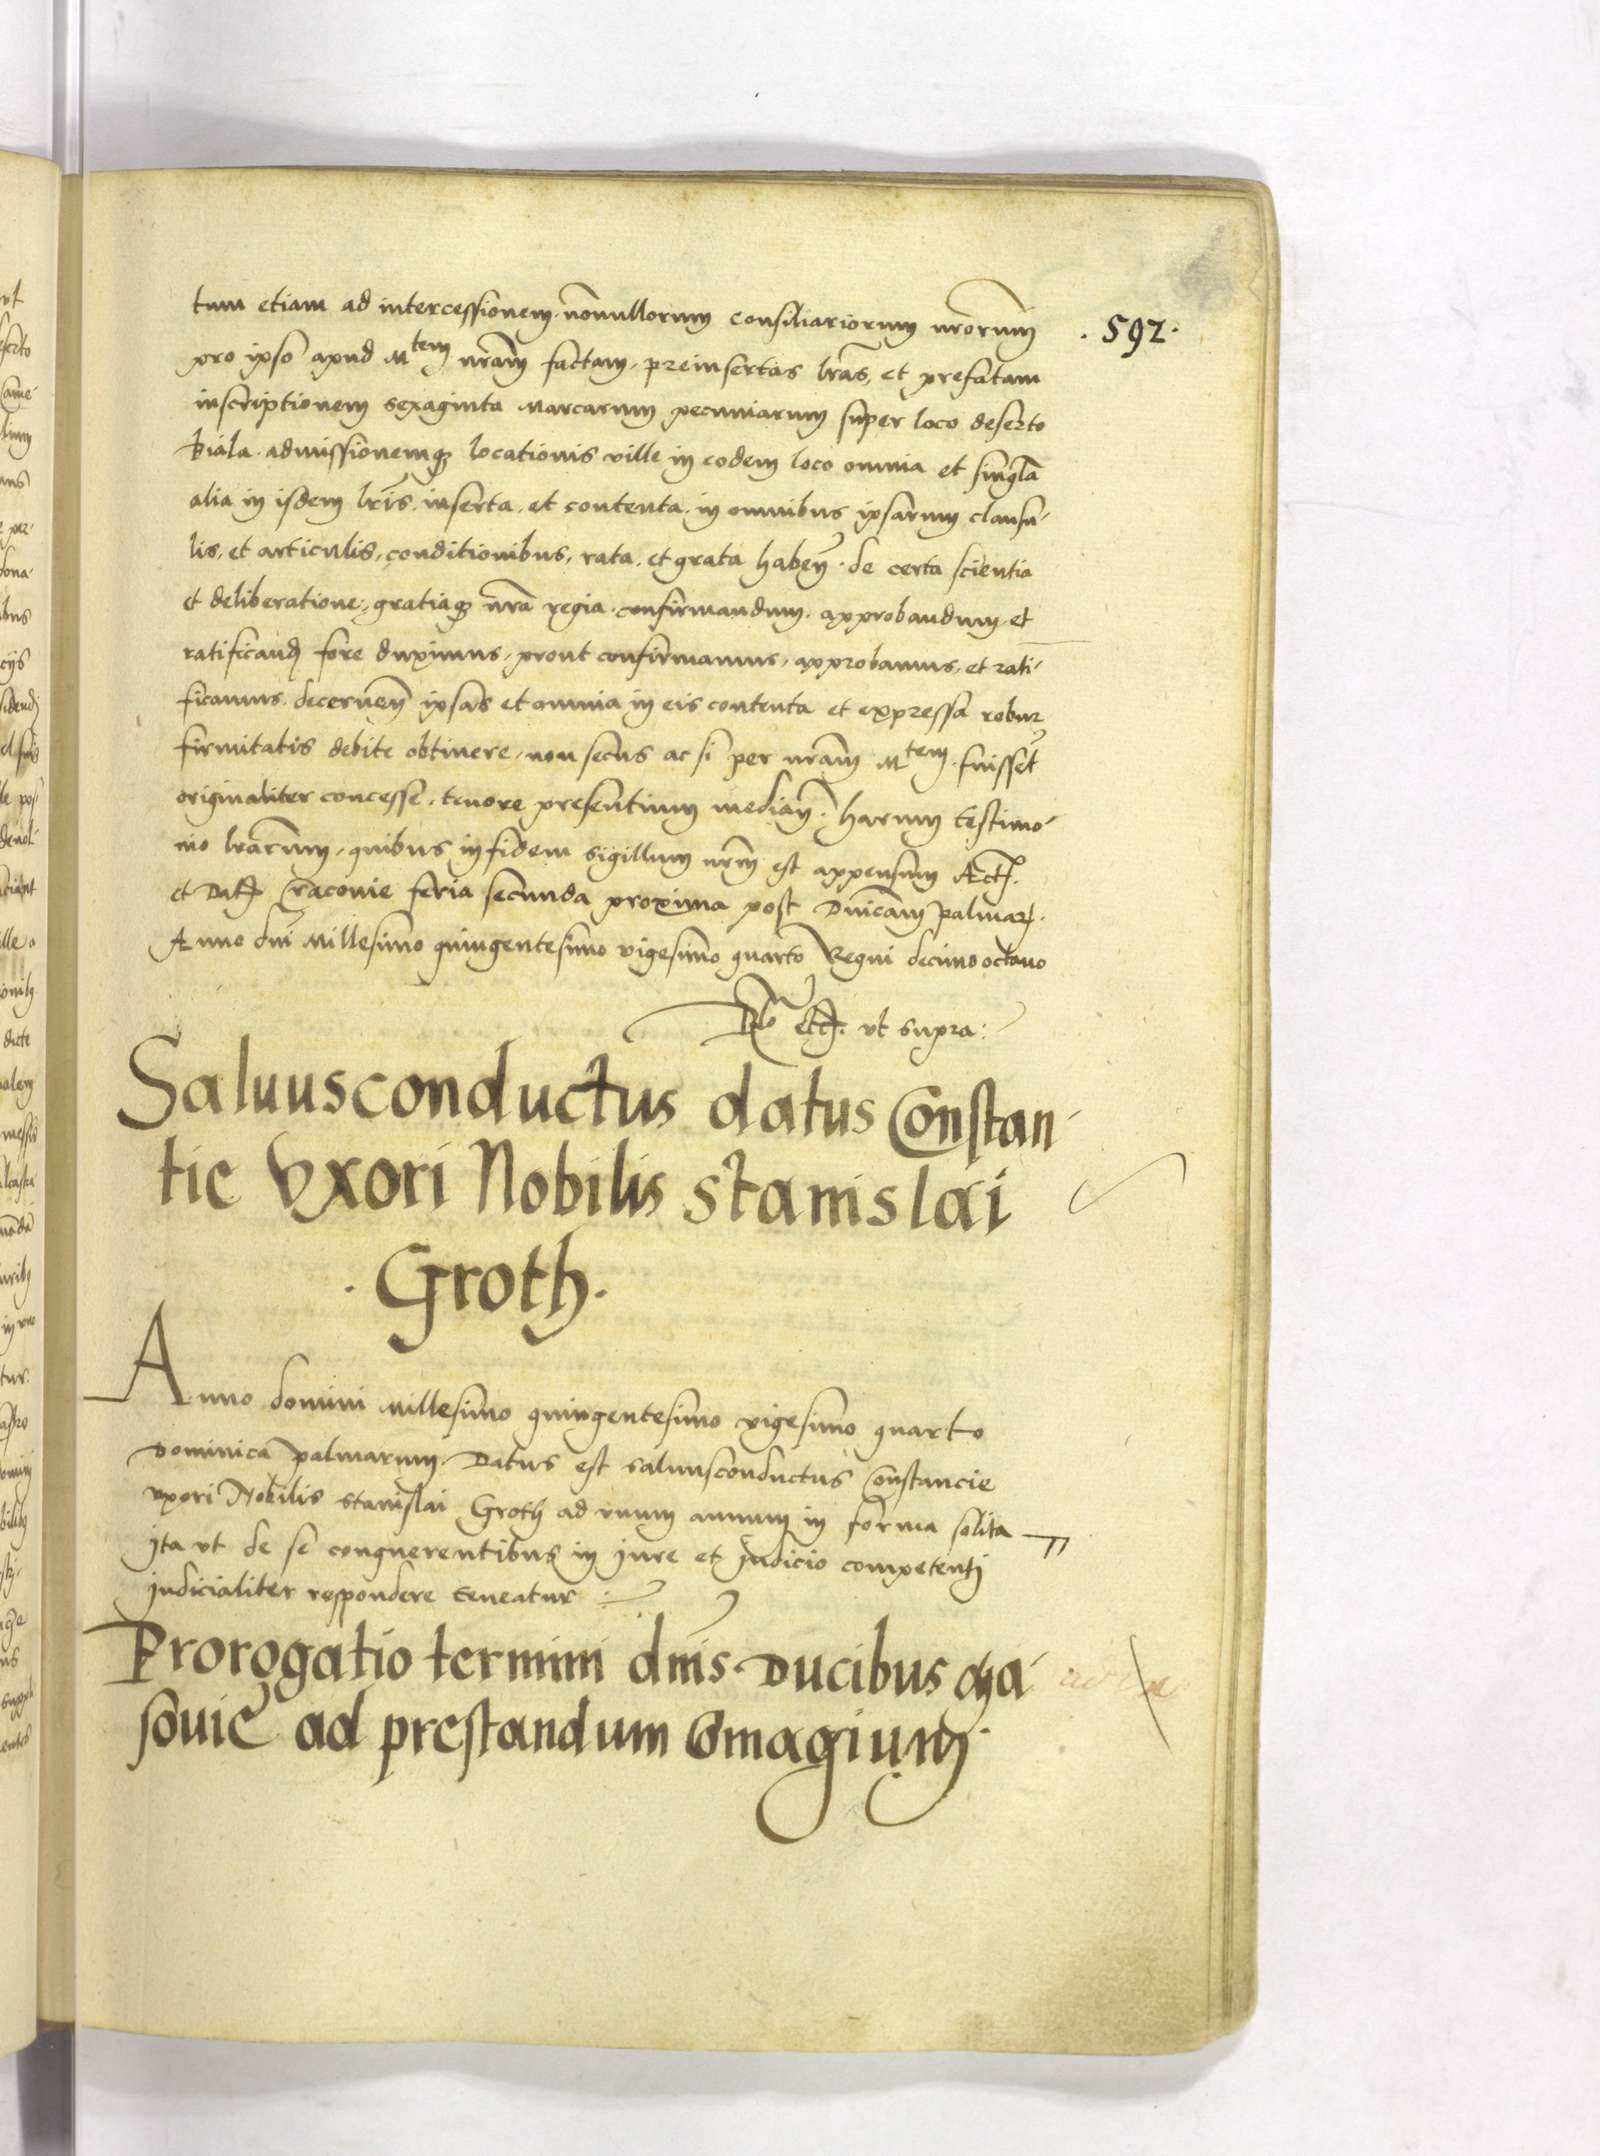 . 592 .
tum etiam ad intercessionem nonnullorum consiliariorum nrorum
pro ipso apud Mtem nram factam, preinsertas lras, et prefatam
inscriptionem sexaginta Marcarum pecuniarum super loco deserto
Biala admissionemq locationis ville in eodem loco omnia et singla
alia in isdem lris inserta et contenta in omnibus ipsarum clausu-
lis, et articulis, conditionibus, rata et grata haben de certa scientia
et deliberatione, gratiaq nra regia confirmandum approbandum et
ratificand fore duximus, prout confirmamus, approbamus, et rati-
ficamus decernen ipsas et omnia in eis contenta et expressa robur
firmitatis debite obtinere, non secus ac si per nram Mtem fuissent
originaliter concesse, tenore presentium median. harum testimo-
nio lrarum, quibus in fidem sigillum nrm est appensum Act.
et Dat Cracouie feria secunda proxima post Dnicam palmar.
Anno dni Millesimo quingentesimo vigesimo quarto Regni decimo octauo
Rlo etc. vt supra:
Saluusconductus datus Constan-
tie vxori Nobilis Stanislai
. Groth .
Anno domini Millesimo quingentesimo vigesimo quarto
Dominica palmarum Datus est saluusconductus Constancie
vxori Nobilis Stanislai Groth ad vnum annum in forma solita
Ita vt de se conquerentibus in iure et Judicio competentj
Judicialiter respondere teneatur :
Prorogatio termini dnis Ducibus Ma-
souie ad prestandum Omagium.